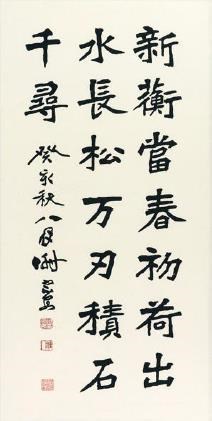 新蘅當春初荷出
水長松万刃積石
千尋
癸亥秋八月